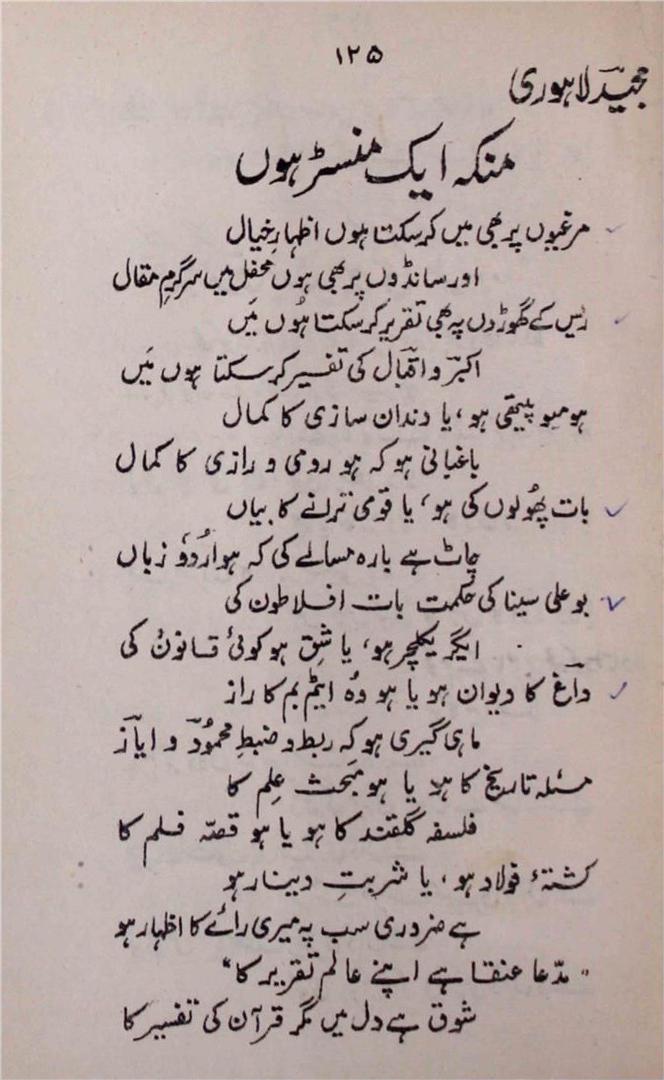 ۱۲۵
مجید لاہوری
منکہ ایک منسٹر ہوں
مرغیوں پر بھی میں کر سکتا ہوں اظہارِ خیال
اور سانڈوں پر بھی ہوں محفل میں سرگرمِ مقال
ریس کے گھوڑوں پہ بھی تقریر کر سکتا ہُوں مَیں
اکبرؔ و اقبالؔ کی تفسیر کر سکتا ہوں مَیں
ہومیو پیتھی ہو، یا دندان سازی کا کمال
باغبانی ہو کہ ہو رومی و رازی کا کمال
بات پھُولوں کی ہو، یا قومی ترانے کا بیاں
چاٹ ہے بارہ مسالے کی کہ ہو اُردُو زباں
بو علی سینا کی حکمت بات افلاطون کی
ایگریکلچر ہو، یا شِق ہو کوئی قانوُن کی
داغؔ کا دیوان ہو یا ہو وُہ ایٹم بم کا راز
ماہی گیری ہو کہ ربط و ضبطِ محموُدؔ و ایازؔ
مسئلہ تاریخ کا ہو یا ہو مَبحث عِلم کا
فلسفہ گلقند کا ہو یا ہو قصّہ فلم کا
کشتۂ فولاد ہو، یا شربتِ دینار ہو
ہے ضروری سب پہ میری رائے کا اظہار ہو
"مدّعا عنقا ہے اپنے عالمِ تقریر کا"
شوق ہے دل میں مگر قرآن کی تفسیر کا